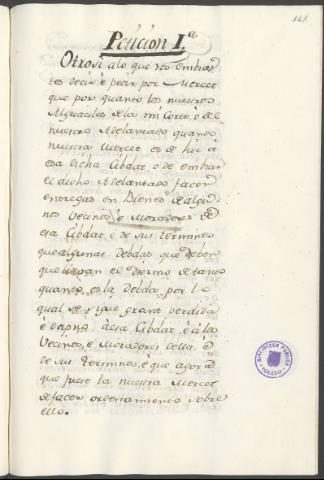 141
Peticion I.ª
Otrosi a lo que nos embias-
tes decir è pedir por Merced
que por quanto los nuestros
Alguaciles de la mi Corte, è del
nuestro Adelantado quando
nuestra Merced es de hir á
esa dicha Cibdat, o de embiar
el dicho Adelantado facen
entregas en Bienes de algu-
nos Vecinos è Moradores de
esa Cibdat, è de sus Terminos
que algunas Debdas que deben
que lievan el Diezmo de tanto
quanto es la Debda, por lo
qual se sigue grant perdida
è dapño à esa Cibdat è á los
Vecinos, è Moradores della è
de sus Terminos, è que agora
que fuese la nuestra Merced
de facer ordenamiento sobre
ello.
BIBLIOTECA PÚBLICA
TOLEDO